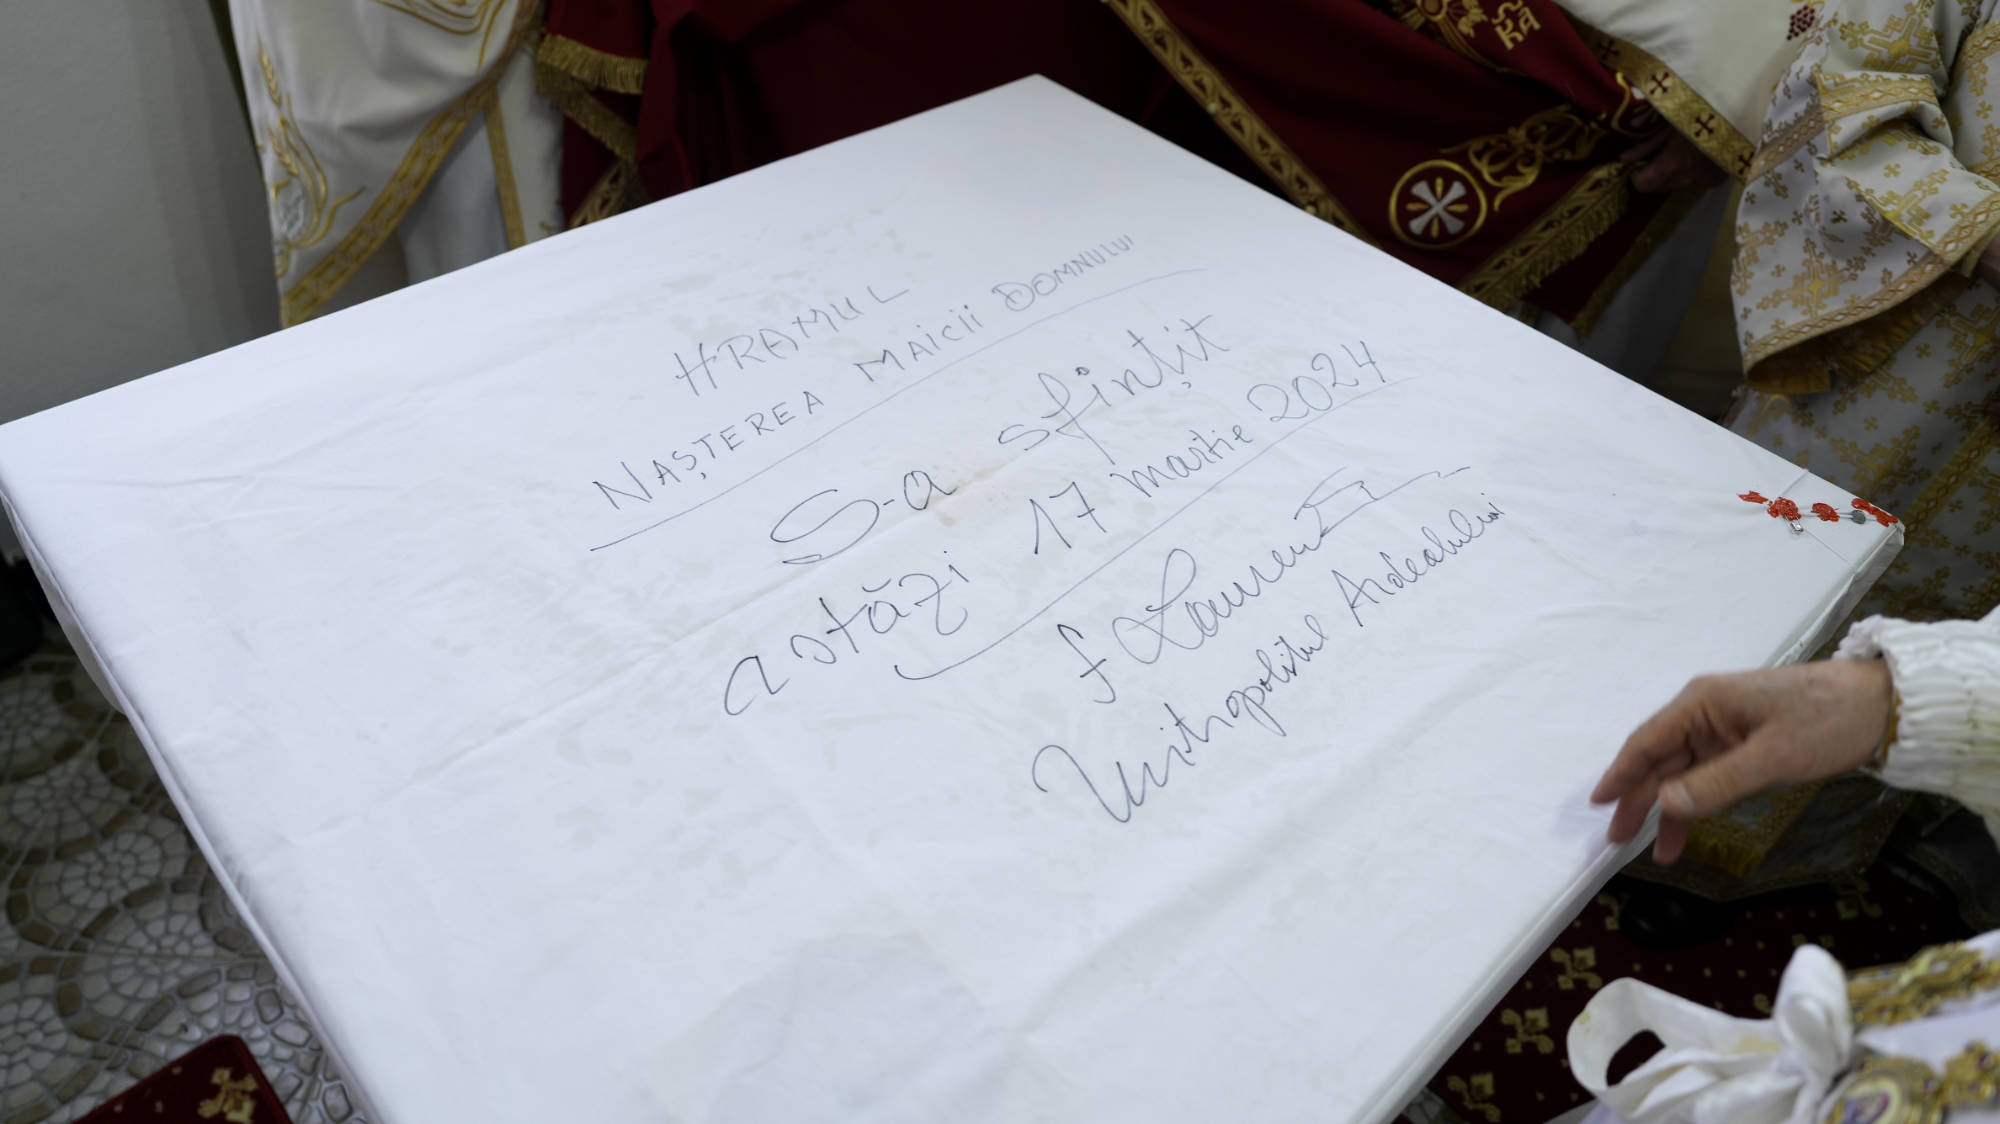 HRAMUL
NAȘTEREA MAICII DOMNULUI
S-a sfințit
astăzi 17 martie 2024
† Laurențiu
Mitropolitul Ardealului